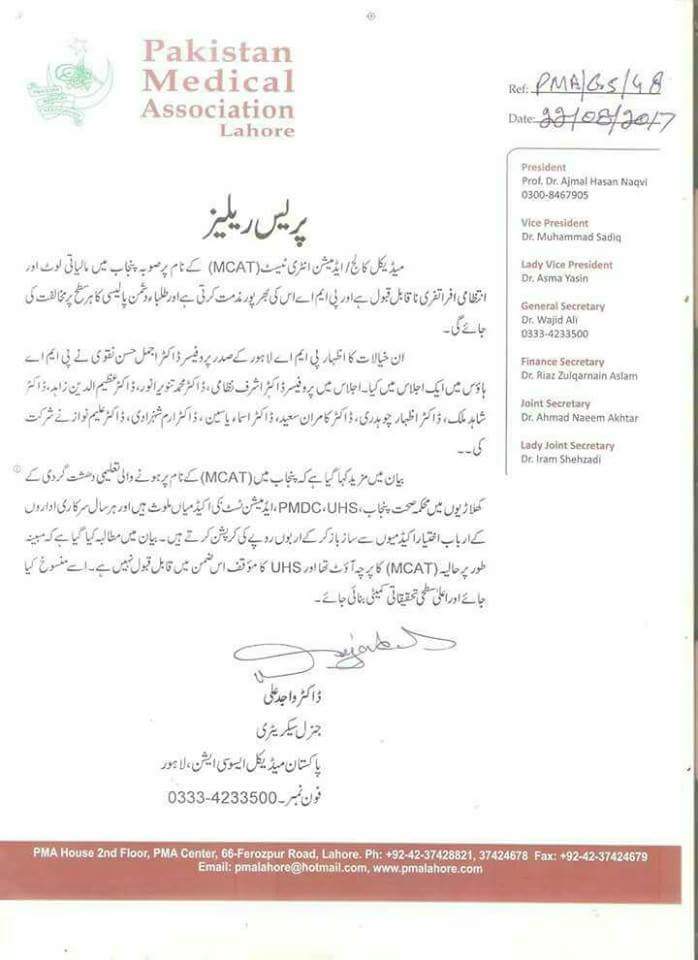 Pakistan
Medical
Association
Lahore
Ref: PMA/GS/48
Date: 22/08/2017
President
Prof. Dr. Ajmal Hasan Naqvi
0300-8467905
Vice President
Dr. Muhammad Sadiq
Lady Vice President
Dr. Asma Yasin
General Secretary
Dr. Wajid Ali
0333-4233500
Finance Secretary
Dr. Riaz Zulqarnain Aslam
Joint Secretary
Dr. Ahmad Naeem Akhtar
Lady Joint Secretary
Dr. Iram Shehzadi
پریس ریلیز
میڈیکل کالج/ایڈمیشن انٹری ٹیسٹ (MCAT) کے نام پر صوبہ پنجاب میں مالیاتی لوٹ اور
انتظامی افراتفری ناقابل قبول ہے اور پی ایم اے اس کی بھرپور مذمت کرتی ہے اور طلباء دشمن پالیسی کا ہر سطح پر مخالفت کی
جائے گی۔
ان خیالات کا اظہار پی ایم اے لاہور کے صدر پروفیسر ڈاکٹر اجمل حسن نقوی نے پی ایم اے
ہاؤس میں ایک اجلاس میں کیا۔ اجلاس میں پروفیسر ڈاکٹر اشرف نظامی، ڈاکٹر محمد تنویر انور، ڈاکٹر عظیم الدین زاہد، ڈاکٹر
شاہد ملک، ڈاکٹر اظہار چوہدری، ڈاکٹر کامران سعید، ڈاکٹر اسماء یاسین، ڈاکٹر ارم شہزادی، ڈاکٹر علیم نواز نے شرکت
کی۔۔
بیان میں مزید کہا گیا ہے کہ پنجاب میں (MCAT) کے نام پر ہونے والی تعلیمی دھشت گردی کے
کھلاڑیوں میں محکمہ صحت پنجاب، PMDC، UHS، ایڈمیشن ٹسٹ کی اکیڈمیاں ملوث ہیں اور ہر سال سرکاری اداروں
کے ارباب اختیار اکیڈمیوں سے ساز باز کر کے اربوں روپے کی کرپشن کرتے ہیں۔ بیان میں مطالبہ کیا گیا ہے کہ مبینہ
طور پر حالیہ (MCAT) کا پرچہ آؤٹ تھا اور UHS کا مؤقف اس ضمن میں قابل قبول نہیں ہے۔ اِسے منسوخ کیا
جائے اور اعلیٰ سطحی تحقیقاتی کمیٹی بنائی جائے۔
ڈاکٹر واجد علی
جنرل سیکریٹری
پاکستان میڈیکل ایسوسی ایشن، لاہور
فون نمبر۔ 0333-4233500
PMA House 2nd Floor, PMA Center, 66-Ferozpur Road, Lahore. Ph: +92-42-37428821, 37424678 Fax: +92-42-37424679
Email: pmalahore@hotmail.com, www.pmalahore.com